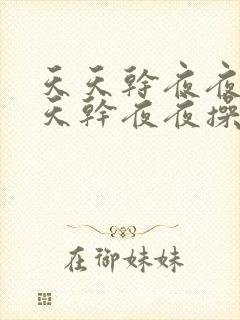 天天幹夜夜
天幹夜夜操
在御妹妹